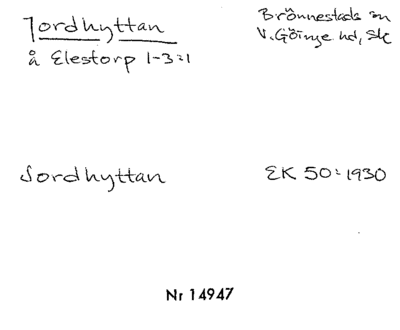 Jordhyttan
Brönnestads sn
V. Göinge hd, Sk
å Elestorp 1-3:1
Jordhyttan
EK 50:1930
Nr 14947